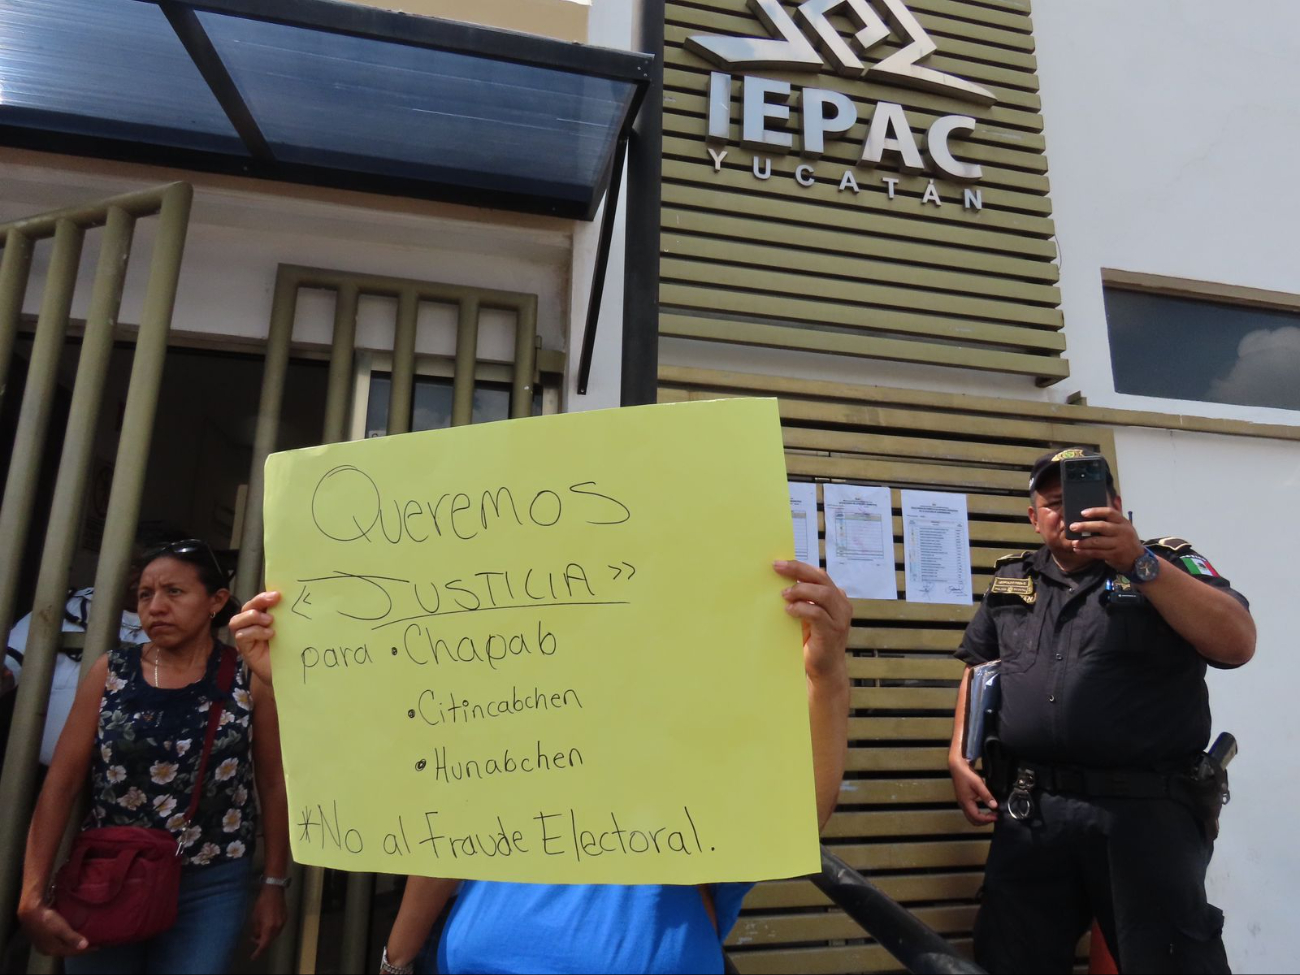 IEPAC
YUCATÁN
Queremos
<< JUSTICIA >>
para • Chapab
• Citincabchen
• Hunabchen
*No al Fraude Electoral.